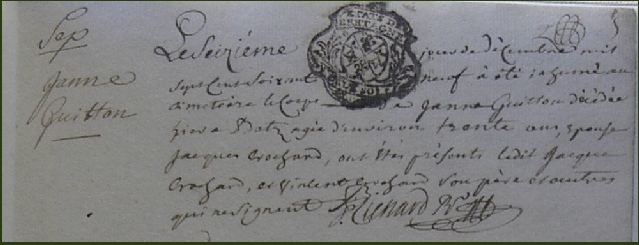 Sep
Janne
Guitton
Le Seiziéme jour de décembre mil
Sept Cent Soixante neuf a été inhumé au
cimetoire le Corps de Janne Guitton décédée
hier a Batz agée d'environ trente ans Epouse
Jacques Crochard, ont étés présents ledit Jacque
Crochard, et Vincent Crochard son père et autres
qui ne signent Richard